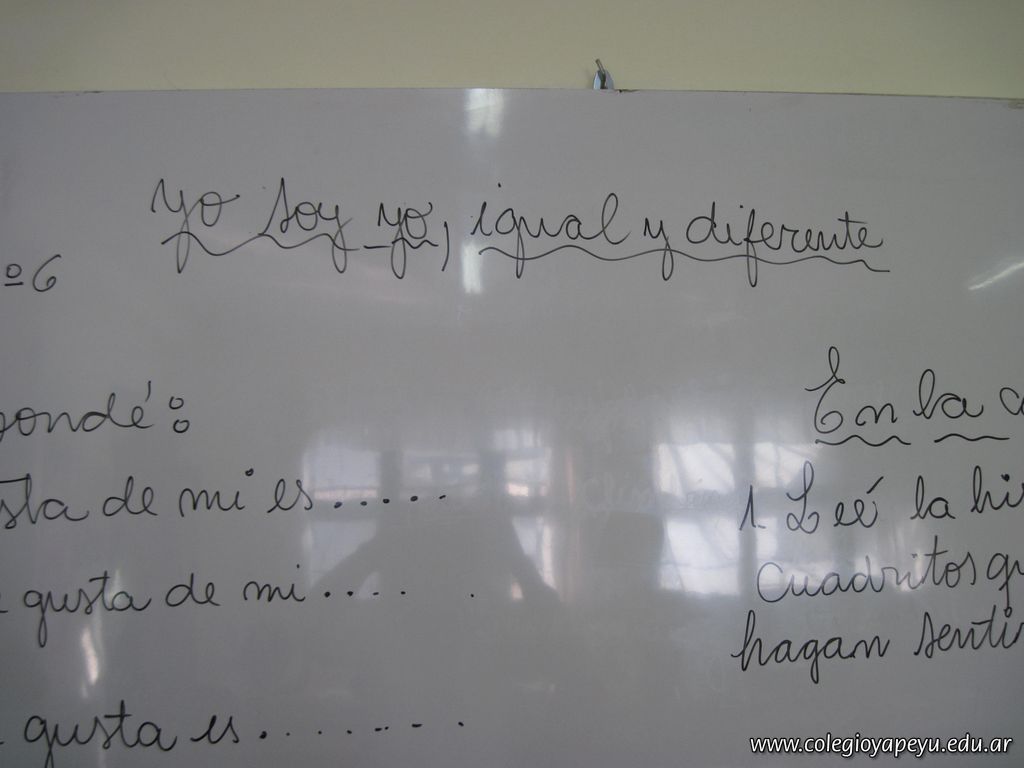 Yo soy yo, igual y diferente
º6
ondé:
sta de mi es.....
gusta de mi....
gusta es.......
En la c
1. Leé la his
cuadritos qu
hagan sentir
www.colegioyapeyu.edu.ar